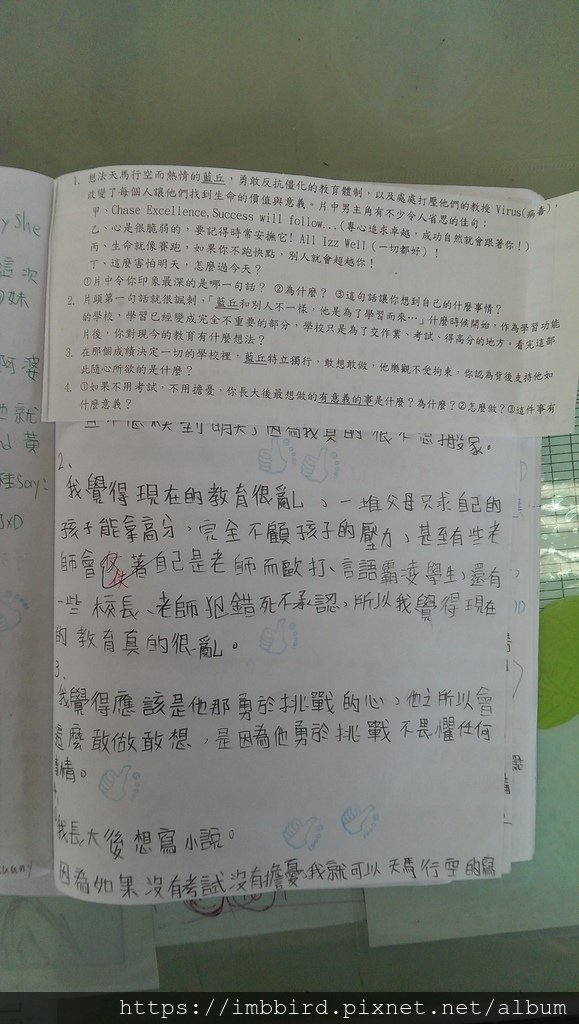 1. 想法天馬行空而熱情的藍丘，勇敢反抗僵化的教育體制，以及處處打壓他們的教授 Virus(病毒)，
改變了每個人讓他們找到生命的價值與意義。片中男主角有不少令人省思的佳句：
甲、Chase Excellence,Success will follow...(專心追求卓越，成功自然就會跟著你！)
乙、心是很脆弱的，要記得時常安撫它! All Izz Well (一切都好) !
丙、生命就像賽跑，如果你不跑快點，別人就會超越你！
丁、這麼害怕明天，怎麼過今天？
①片中令你印象最深的是哪一句話？ ②為什麼？ ③這句話讓你想到自己的什麼事情？
2. 片頭第一句話就很諷刺，「藍丘和別人不一樣，他是為了學習而來…」什麼時候開始，作為學習功能
的學校，學習已經變成完全不重要的部分，學校只是為了交作業、考試、得高分的地方。看完這部
片後，你對現今的教育有什麼想法？
3. 在那個成績決定一切的學校裡，藍丘特立獨行，敢想敢做，他樂觀不受拘束，你認為背後支持他如
此隨心所欲的是什麼？
4. ①如果不用考試，不用擔憂，你長大後最想做的有意義的事是什麼？為什麼？②怎麼做？③這件事有
什麼意義？
因為我真的很不想搬家。
2、
我覺得現在的教育很亂，一堆父母只求自己的
孩子能拿高分，完全不顧孩子的壓力，甚至有些老
師會仗著自己是老師而歐打、言語霸凌學生，還有
一些校長、老師犯錯死不承認，所以我覺得現在
的教育真的很亂。
3、
我覺得應該是他那勇於挑戰的心，他之所以會
這麼敢做敢想，是因為他勇於挑戰不畏懼任何
事情。
我長大後想寫小說。
因為如果沒有考試沒有擔憂，我就可以天馬行空的寫
y she
這次
妹
阿婆
就
黃
say:
xD
https://imbbird.pixnet.net/album